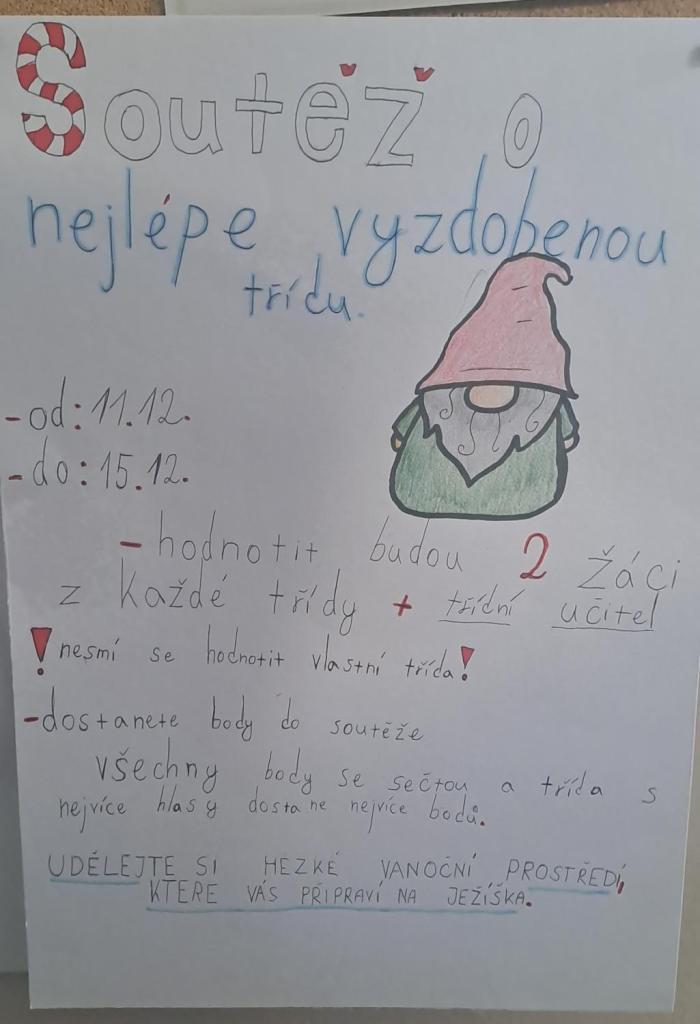 Soutěž o
nejlépe vyzdobenou
třídu.
-od: 11.12.
-do: 15.12.
-hodnotit budou 2 žáci
z každé třídy + třídní učitel
! nesmí se hodnotit vlastní třída!
-dostanete body do soutěže
všechny body se sečtou a třída s
nejvíce hlasy dostane nejvíce bodů.
UDĚLEJTE SI HEZKÉ VANOČNÍ PROSTŘEDÍ,
KTERE VÁS PŘIPRAVÍ NA JEŽÍŠKA.